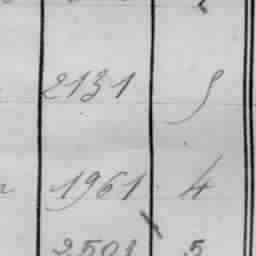 2131
1961 4
2501 5